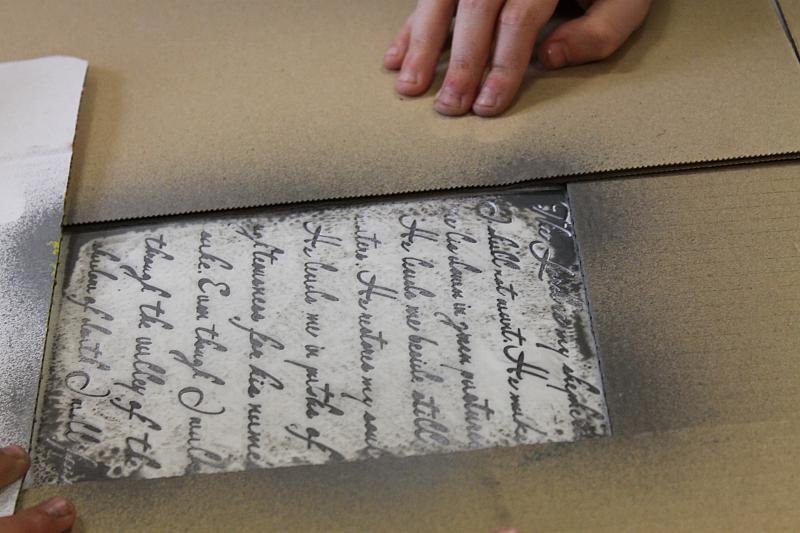 The Lord is my shephe
I shall not want. He make
me lie down in green pasture
He leads me beside still
aters. He restores my soul
He leads me in paths of
ighteousness for his name
sake. Even though I walk
though the valley of the
shadow of death I will fear